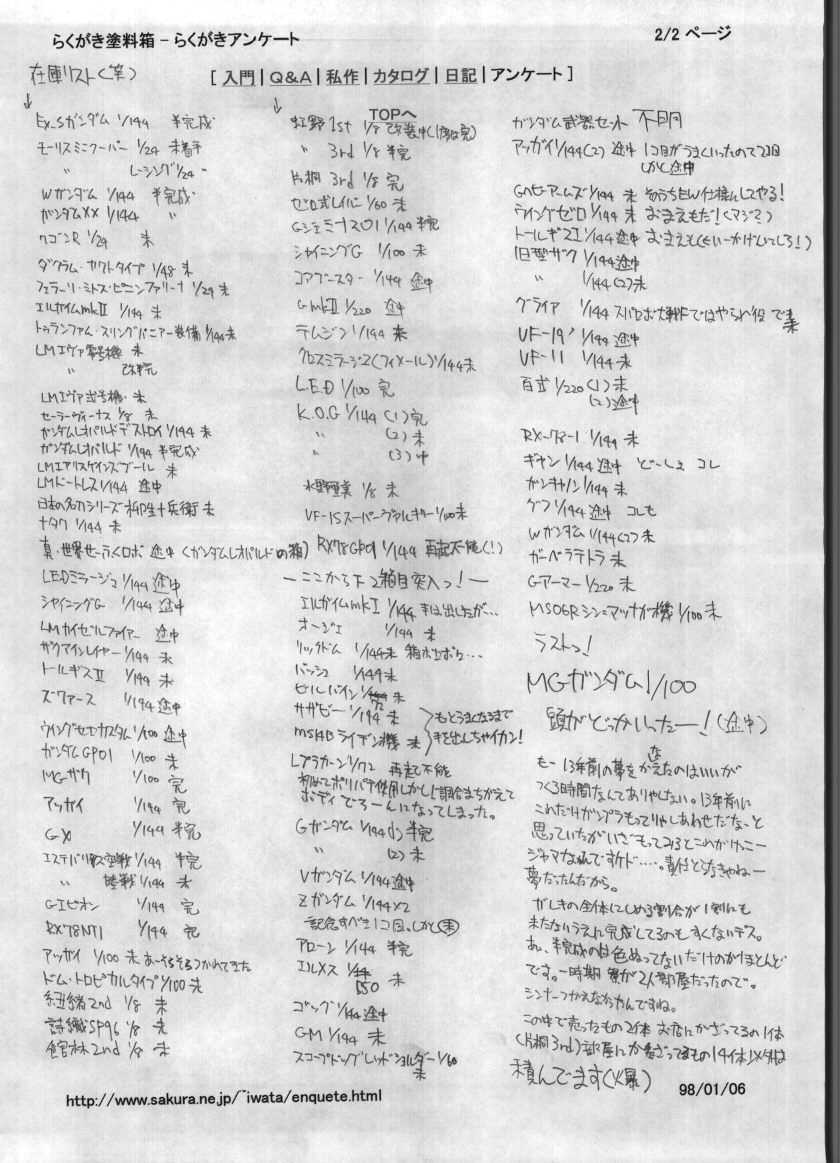 らくがき塗料箱 - らくがきアンケート
2/2 ページ
[ 入門 | Q&A | 私作 | カタログ | 日記 | アンケート ]
TOPへ
在庫リスト(笑)
↓
Ex_Sガンダム 1/144 半完成
モーリスミニクーパー 1/24 未着手
〃 レーシング 1/24 〃
Wガンダム 1/144 半完成
ガンダムXX 1/144 〃
ワゴンR 1/24 未
ダグラム・ヤクトタイプ 1/48 未
フェラーリ・ミトス・ピニンファリーナ 1/24 未
エルガイムmkⅡ 1/144 未
トゥランファム・スリングパニアー装備 1/144 未
LMエヴァ零号機 未
〃 改 半完
LMエヴァ弐号機・未
セーラーヴィーナス 1/8 未
ガンダムレオパルドデストロイ 1/144 未
ガンダムレオパルド 1/144 半完成
LMエアリスゲインズブール 未
LMドートレス 1/144 途中
日本の名刀シリーズ 柳生十兵衛 未
ナタク 1/144 未
真・世界せーふくロボ 途中 (ガンダムレオパルドの箱)
LEDミラージュ 1/144 途中
シャイニングG 1/144 途中
LMカイゼルファイヤー 途中
ザクマインレイヤー 1/144 未
トールギスⅡ 1/144 未
ズワァース 1/144 途中
ウイングゼロカスタム 1/100 途中
ガンダムGP01 1/100 未
MGザク 1/100 完
アッガイ 1/144 完
G-X 1/144 半完
エステバリス空戦 1/144 半完
〃 陸戦 1/144 未
G-エピオン 1/144 完
RX78NT1 1/144 完
アッガイ 1/100 未 あーそろそろつかれてきた
ドム・トロピカルタイプ 1/100 未
紐緒2nd 1/8 未
詩織SP96 1/8 未
館林2nd 1/8 未
↓
虹野1st 1/8 改装中(1体は完)
〃 3rd 1/8 半完
片桐 3rd 1/8 完
ゼロ式レイバー 1/60 未
Gジェミナス01 1/144 半完
シャイニングG 1/100 未
コアブースター 1/144 途中
GmkⅡ 1/220 途中
テムジン 1/144 未
クロスミラージュ(フィメール) 1/144 未
L.E.D 1/100 完
K.O.G 1/144 (1)完
〃 (2)未
〃 (3)中
水野亜美 1/8 未
VF-1Sスーパーヴァルキリー 1/100 未
RX78GP01 1/144 再起不能(!)
―ここから下2箱目突入っ!―
エルガイムmkⅠ 1/144 手は出したが…
オージェ 1/144 未
リックドム 1/144 未 箱ボロボロ…
バッシュ 1/144 未
ビルバイン 1/72 未
サザビー 1/144 未
MS14B ライデン機 未
もとうまくなるまで
手を出しちゃイカン!
Lプラカーン 1/72 再起不能
初めてポリパテ使用しかし調合まちがえて
ボディでろーんになってしまった。
Gガンダム 1/144 (1)半完
〃 (2)未
Vガンダム 1/144 途中
Zガンダム 1/144×2
記念すべき1コ目。しかし未
アローン 1/144 半完
エルメス 1/550 未
ゴッグ 1/144 途中
GM 1/144 未
スコープドッグレッドショルダー 1/60 未
ガンダム武器セット 不明
アッガイ 1/144(2) 途中 1コ目がうまくいったので2コ目
しかし途中
Gヘビーアームズ 1/144 未 そのうちEW仕様にしてやる!
ウイングゼロ 1/144 未 おまえもだ!(マジ?)
トールギスⅠ 1/144 途中 おまえも(もいーかげんにしろ!)
旧型ザク 1/144 途中
〃 1/144(2)未
グライア 1/144 スパロボ大戦Fではやられ役で未
VF-19' 1/144 途中
VF-11 1/144 未
百式 1/220 (1)未
(2)途中
RX-78-1 1/144 未
ギャン 1/144 途中 どーしよ コレ
ガンキャノン 1/144 未
グフ 1/144 途中 コレも
Wガンダム 1/144(2)未
ガーベラテトラ 未
G-アーマー 1/220 未
MS06R シン・マツナガ機 1/100 未
ラストっ!
MGガンダム 1/100
頭がどっかいったー!(途中)
もー13年前の夢をかなえたのはいいが
つくる時間なんてありゃしない。13年前に
これだけガンプラもってりゃしあわせだなーと
思っていたがいざもってみるとこれがけっこー
ジャマなんですケド……。責任とらなきゃねー
夢だったんだから。
ガレキの全体にしめる割合が1割にも
未たないうえに完成してるのもすくないデス。
あ、半完成のは色ぬってないだけのがほとんど
です。一時期 寮が2人部屋だったので。
シンナーつかえなかったんですね。
この中で売ったもの2体 お店にかざってるの1体
(片桐3rd)部屋にかざってるもの14体以外は
積んでます(爆)
http://www.sakura.ne.jp/~iwata/enquete.html
98/01/06